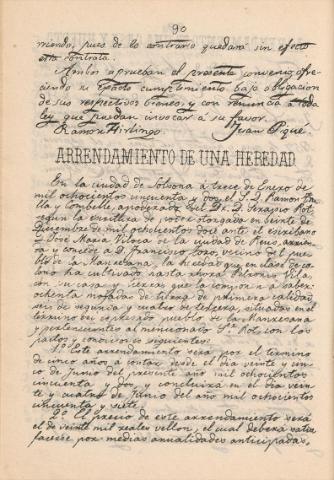 90
niendo, pues de lo contrario quedará sin efecto
esta contrata.
Ambos aprueban el presente convenio ofre-
ciendo su exacto cumplimiento bajo obligacion
de sus respectivos bienes, y con renuncia á toda
ley que puedan invocar á su favor.
Ramon Mirlingo. Juan Piqué.
ARRENDAMIENTO DE UNA HEREDAD
En la ciudad de Solsona á trece de Enero de
mil ochocientos cincuenta y dos, el S. D. Ramon
lla y Comelle, apoderado del S. D. Serapio Rot,
segun la escritura de poder otorgado en veinte de
Diciembre de mil ochocientos doce ante el escribano
D. José Maria Viloca de la ciudad de Reus, arrien-
da y concede á D. Francisco Toro, vecino del pue-
blo de la Manresana, la heredad que en clase de colo-
no ha cultivado hasta ahora Pelegrin Vila,
con su casa y tierras que la componen á saber:
ochenta mojadas de tierra de primera calidad,
seis de segunda y cuatro de tercera, situada en el
término del espresado pueblo de la Manresana
y pertenecientes al mencionado Sr. Rot, con los
pactos y condiciones siguientes:
1.º Este arrendamiento será por el término
de cinco años á contar desde el dia veinte y un-
o de Junio del presente año mil ochocientos
cincuenta y dos, y concluirá en el dia vein-
te y cuatro de Junio del año mil ochocientos
cincuenta y siete.
2.º El precio de este arrendamiento será
el de veinte mil reales vellon, el cual deberá satis-
facerse por medias anualidades anticipadas,